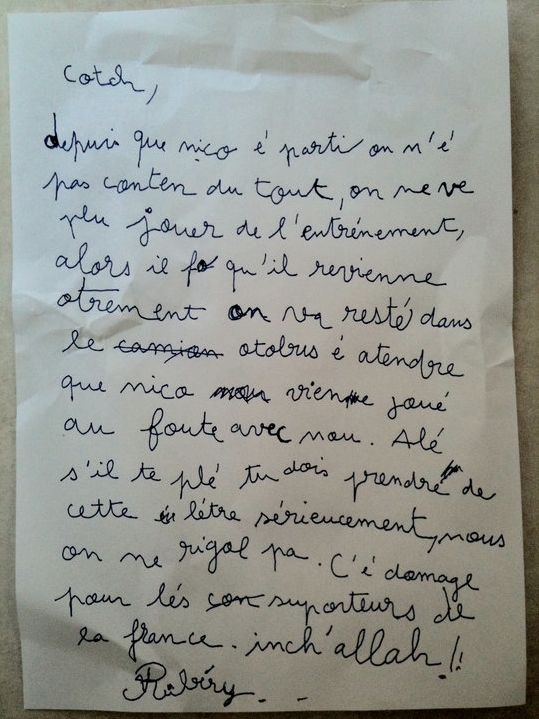 cotch,
depuis que nico é parti on n'é
pas conten du tout, on ne ve
plu jouer de l'entrénement,
alors il fo qu'il revienne
otrement on va resté dans
le camion otobus é atendre
que nico vienne joué
au foute avec nou. Alé
s'il te plé tu dois prendre de
cette létre sérieucement, nous
on ne rigol pa. C'é domage
pour lés con suporteurs de
la france. inch'allah!!
Ribéry...